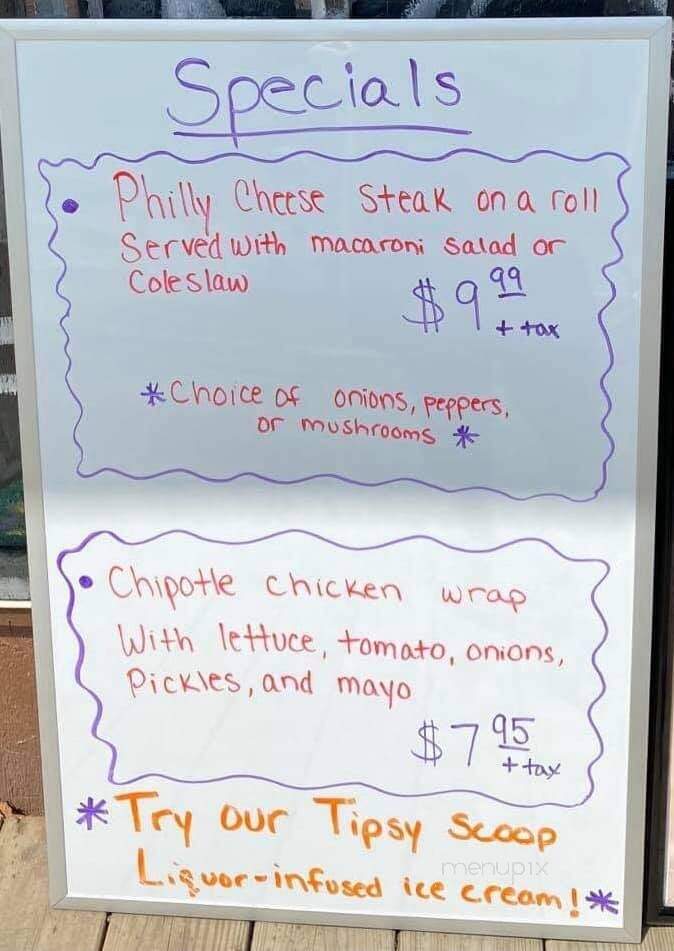 Specials
• Philly Cheese Steak on a roll
Served with macaroni salad or
Coleslaw
$9 99
+ tax
*Choice of onions, peppers,
or mushrooms *
• Chipotle chicken wrap
With lettuce, tomato, onions,
Pickles, and mayo
$7 95
+ tax
*Try our Tipsy Scoop
Liquor-infused ice cream!*
menupix